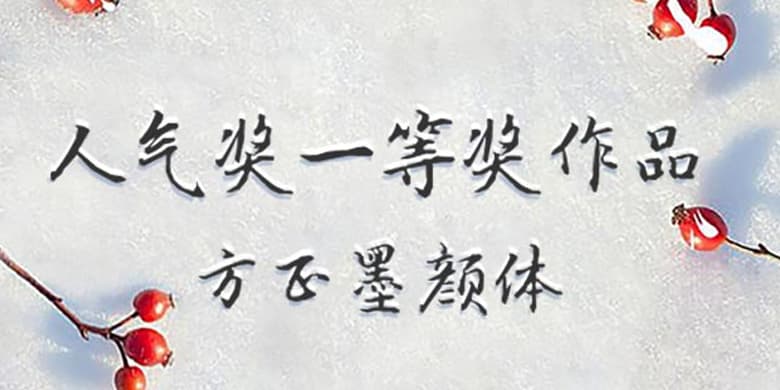 人气奖一等奖作品
方正墨颜体